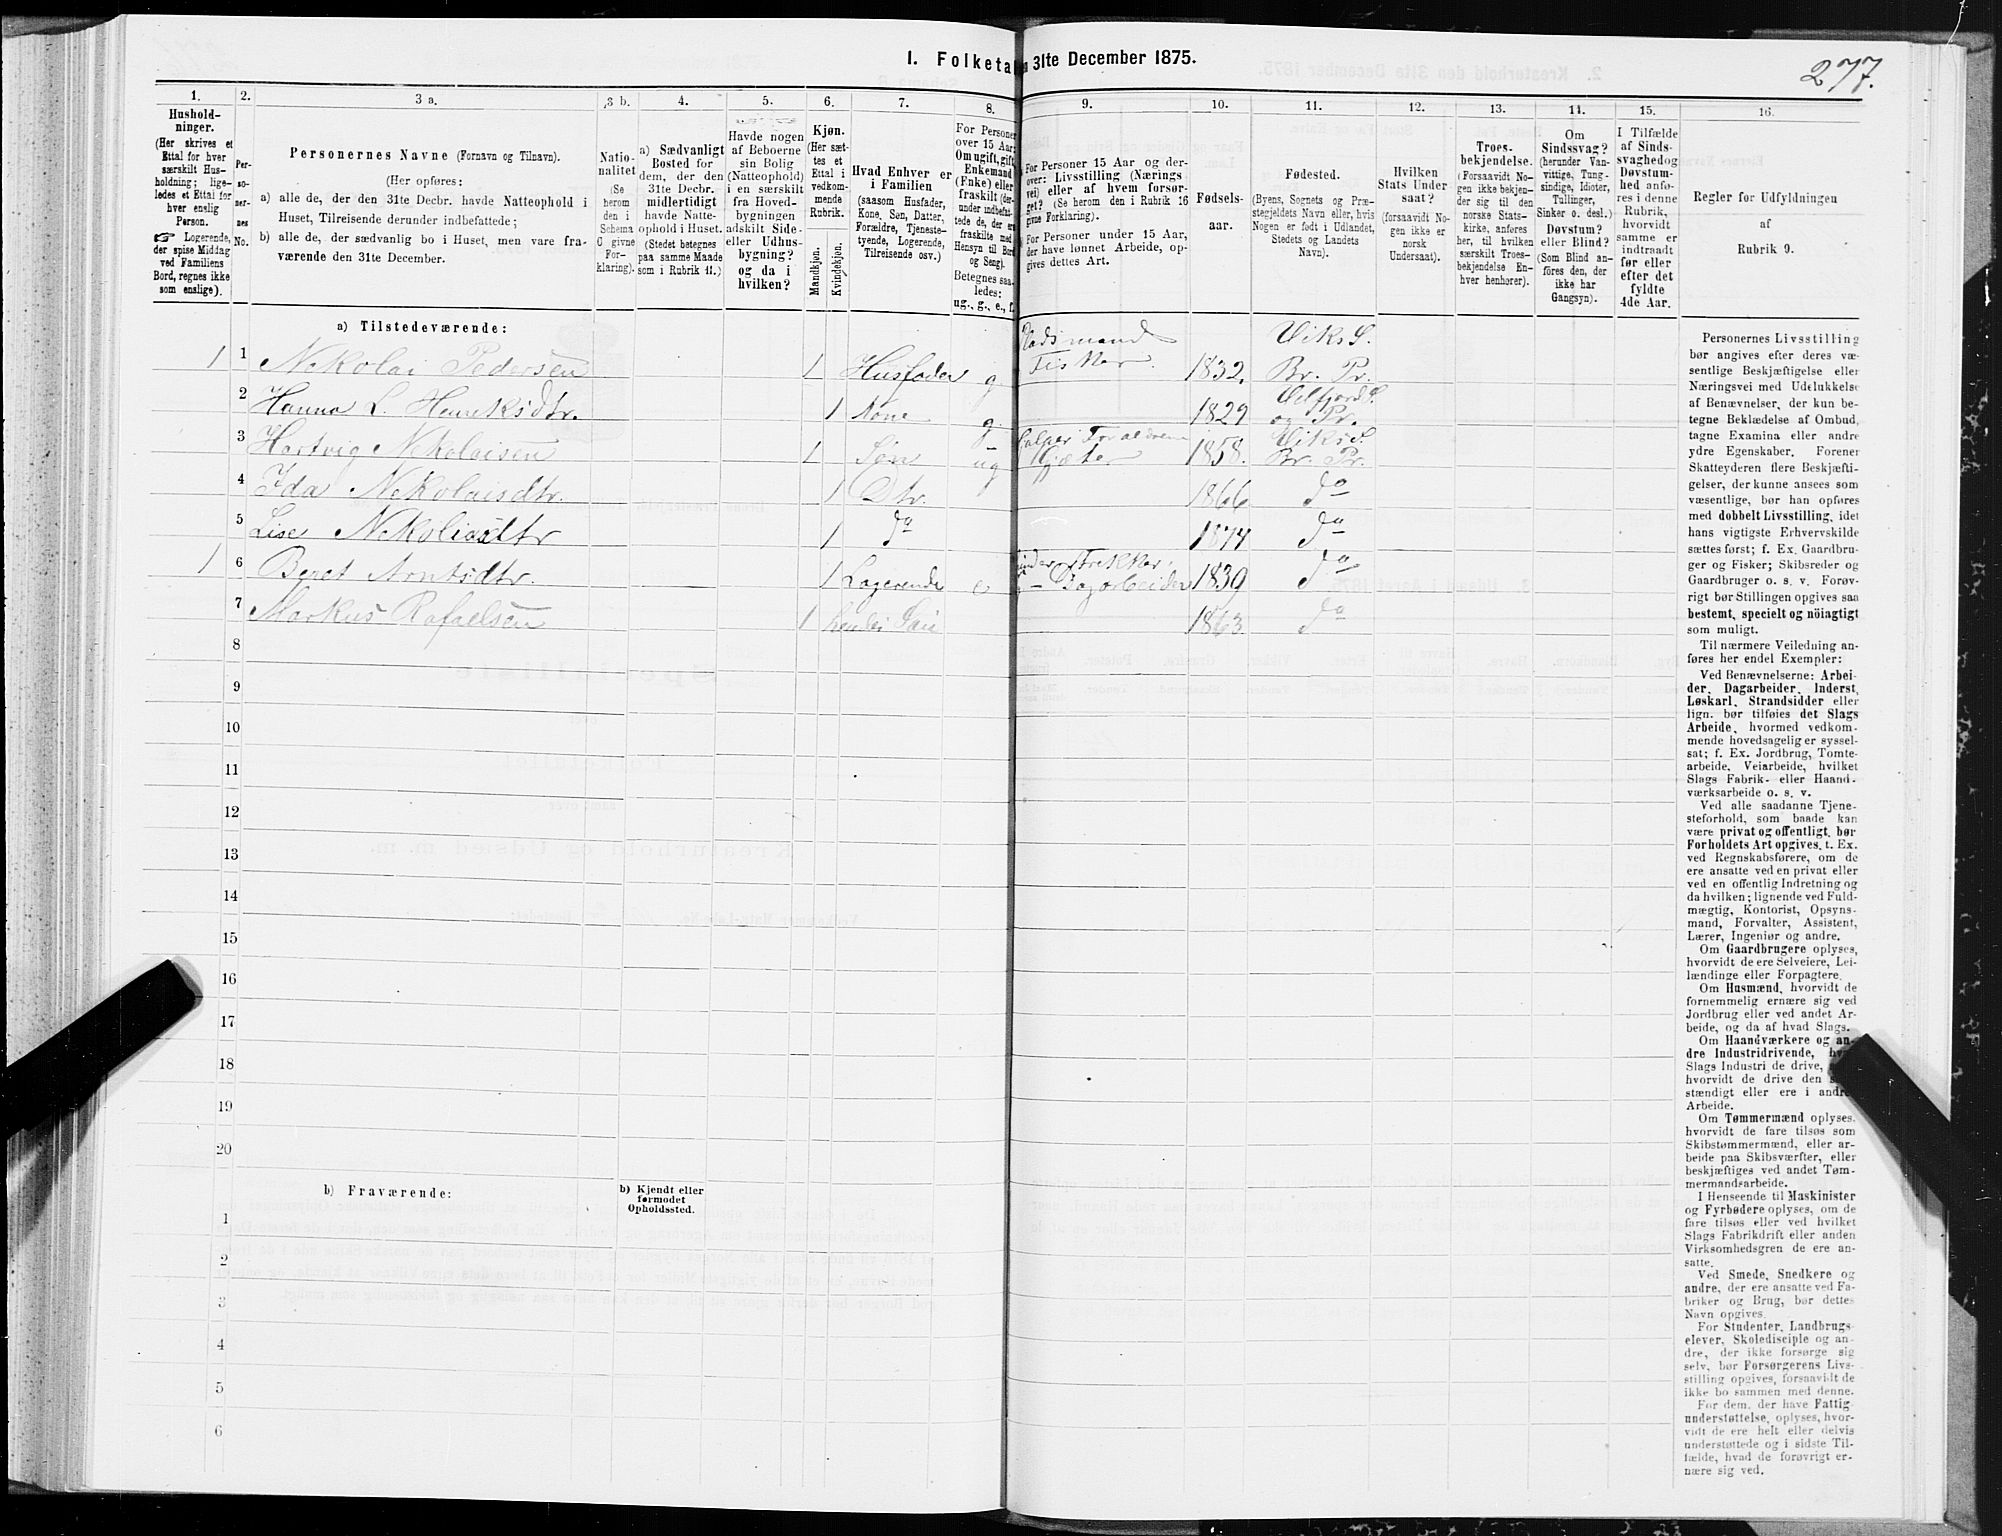 I. Folketa
n 31te December 1875.
277.
1.
Husholdninger.
(Her skrives et
Ettal for hver
særskilt Husholdning;
ligeledes et Ettal for
hver enslig
Person.
Logerende,
der spise Middag
ved Familiens
Bord, regnes ikke
som enslige).
2.
Personernes
No.
3 a.
Personernes Navne (Fornavn og Tilnavn).
(Her opføres:
a) alle de, der den 31te Decbr. havde Natteophold i
Huset, Tilreisende derunder indbefattede;
b) alle de, der sædvanlig bo i Huset, men vare fraværende
den 31te December.
3 b.
Nationalitet
(Se
herom
den i
Schema
C givne
Forklaring).
4.
a) Sædvanligt
Bosted for
dem, der den
31te Decbr.
midlertidigt
havde Natteophold
i Huset.
(Stedet betegnes
paa samme Maade
som i Rubrik 11.)
5.
Havde nogen
af Beboerne
sin Bolig
(Natteophold)
i en særskilt
fra Hovedbygningen
adskilt Side-
eller Udhusbygning?
og da i
hvilken?
6.
Kjøn.
(Her sættes
et
Ettal i
vedkommende
Rubrik.
Mandkjøn.
Kvindekjøn.
7.
Hvad Enhver er
i Familien
(saasom Husfader,
Kone, Søn, Datter,
Forældre, Tjenestetyende,
Logerende,
Tilreisende osv.)
8.
For Personer
over 15 Aar:
Om ugift, gift,
Enkemand
(Enke) eller
fraskilt
Betegnes saaledes:
ug., g., e., f.
9.
For Personer 15 Aar og derover:
Livsstilling (Næringsvei)
eller af hvem forsørget?
(Se herom den i Rubrik 16
givne Forklaring).
For Personer under 15 Aar,
der have lønnet Arbeide, opgives
dettes Art.
10.
Fødselsaar.
11.
Fødested.
(Byens, Sognets og Præstegjeldets
Navn eller, hvis
Nogen er født i Udlandet,
Stedets og Landets
Navn).
12.
Hvilken
Stats Undersaat?
(forsaavidt Nogen
ikke er
norsk
Undersaat).
13.
Troesbekjendelse.
(Forsaavidt Nogen
ikke bekjender
sig til den
norske Statskirke,
anføres
her, til hvilken
særskilt Troesbekjendelse
Enhver
henhører).
14.
Om
Sindssvag?
(herunder Vanvittige,
Tungsindige,
Idioter,
Tullinger,
Sinker o. desl.)
Døvstum?
eller Blind?
(Som Blind anføres
den, der
ikke har
Gangsyn).
15.
I Tilfælde
af Sindssvaghed
og
Døvstumhed
anføres
i denne
Rubrik,
hvorvidt
samme er
indtraadt
før eller
efter det
fyldte
4de Aar.
16.
Regler for Udfyldningen
af
Rubrik 9.
a) Tilstedeværende:
1 1 Nekolai Pedersen 1 Husfader g Pladsmand Fisker. 1832. Viks S. Br. Pr.
2 Hanna L. Henreksdtr. 1 Kone g. 1829 Velfjord S. og Pr.
3 Hartvig Nekolaisen 1 Søn ug Gjæter 1858. Viks S. Br. Pr.
4 Ida Nekolaisdtr. 1 Dtr. 1866 do
5 Lise 1 do 1874 do
1 6 Beret Arntsdtr. 1 Logerende e Dagarbeider 1839 do
7 Markus Rafaelsen 1 hendes Søn 1863 do
8
9
10
11
12
13
14
15
16
17
18
19
20
b) Fraværende:
b) Kjendt eller
formodet
Opholdssted.
1
2
3
4
5
6
Personernes Livsstilling
bør angives efter deres væsentlige
Beskjæftigelse eller
Næringsvei med Udelukkelse
af Benævnelser, der kun betegne
Beklædelse af Ombud,
tagne Examina eller andre
ydre Egenskaber. Forener
Skatteyderen flere Beskjæftigelser,
der kunne ansees som
væsentlige, bør han opføres
med dobbelt Livsstilling, idet
hans vigtigste Erhvervskilde
sættes først; f. Ex. Gaardbruger
og Fisker; Skibsreder og
Gaardbruger o. s. v. Forøvrigt
bør Stillingen opgives saa
bestemt, specielt og nöiagtigt
som muligt.
Til nærmere Veiledning anføres
her endel Exempler:
Ved Benævnelserne: Arbeider,
Dagarbeider, Inderst,
Løskarl, Strandsidder eller
lign. bør tilføies det Slags
Arbeide, hvormed vedkommende
hovedsagelig er sysselsat;
f. Ex. Jordbrug, Tomtearbeide,
Veiarbeide, hvilket
Slags Fabrik- eller Haandværksarbeide
o. s. v.
Ved alle saadanne Tjenesteforhold,
som baade kan
være privat og offentligt, bør
Forholdets Art opgives, t. Ex.
ved Regnskabsførere, om de
ere ansatte ved en privat eller
ved en offentlig Indretning og
da hvilken; lignende ved Fuldmægtig,
Kontorist, Opsynsmand,
Forvalter, Assistent,
Lærer, Ingeniør og andre.
Om Gaardbrugere oplyses,
hvorvidt de ere Selveiere, Leilændinge
eller Forpagtere.
Om Husmænd, hvorvidt de
fornemmelig ernære sig ved
Jordbrug eller ved andet Arbeide,
og da af hvad Slags.
Om Haandværkere og andre
Industridrivende,
Slags Industri de drive,
hvorvidt de drive den
stændigt eller ere i andres
Arbeide.
Om Tømmermænd oplyses,
hvorvidt de fare tilsøs som
Skibstømmermænd, eller arbeide
paa Skibsværfter, eller
beskjæftiges ved andet Tømmermandsarbeide.
I Henseende til Maskinister
og Fyrbødere oplyses, om de
fare tilsøs eller ved hvilket
Slags Fabrikdrift eller anden
Virksomhedsgren de ere ansatte.
Ved Smede, Snedkere og
andre, der ere ansatte ved Fabriker
og Brug, bør dettes
Navn opgives.
For Studenter, Landbrugselever,
Skoledisciple og andre,
der ikke forsørge sig
selv, bør Forsørgerens Livsstilling
opgives, forsaavidt de
ikke bo sammen med denne.
For dem, der have Fattigunderstøttelse,
oplyses, hvorvidt
de ere helt eller delvis
understøttede og i sidste Tilfælde,
hvad de forøvrigt ernære
sig ved.